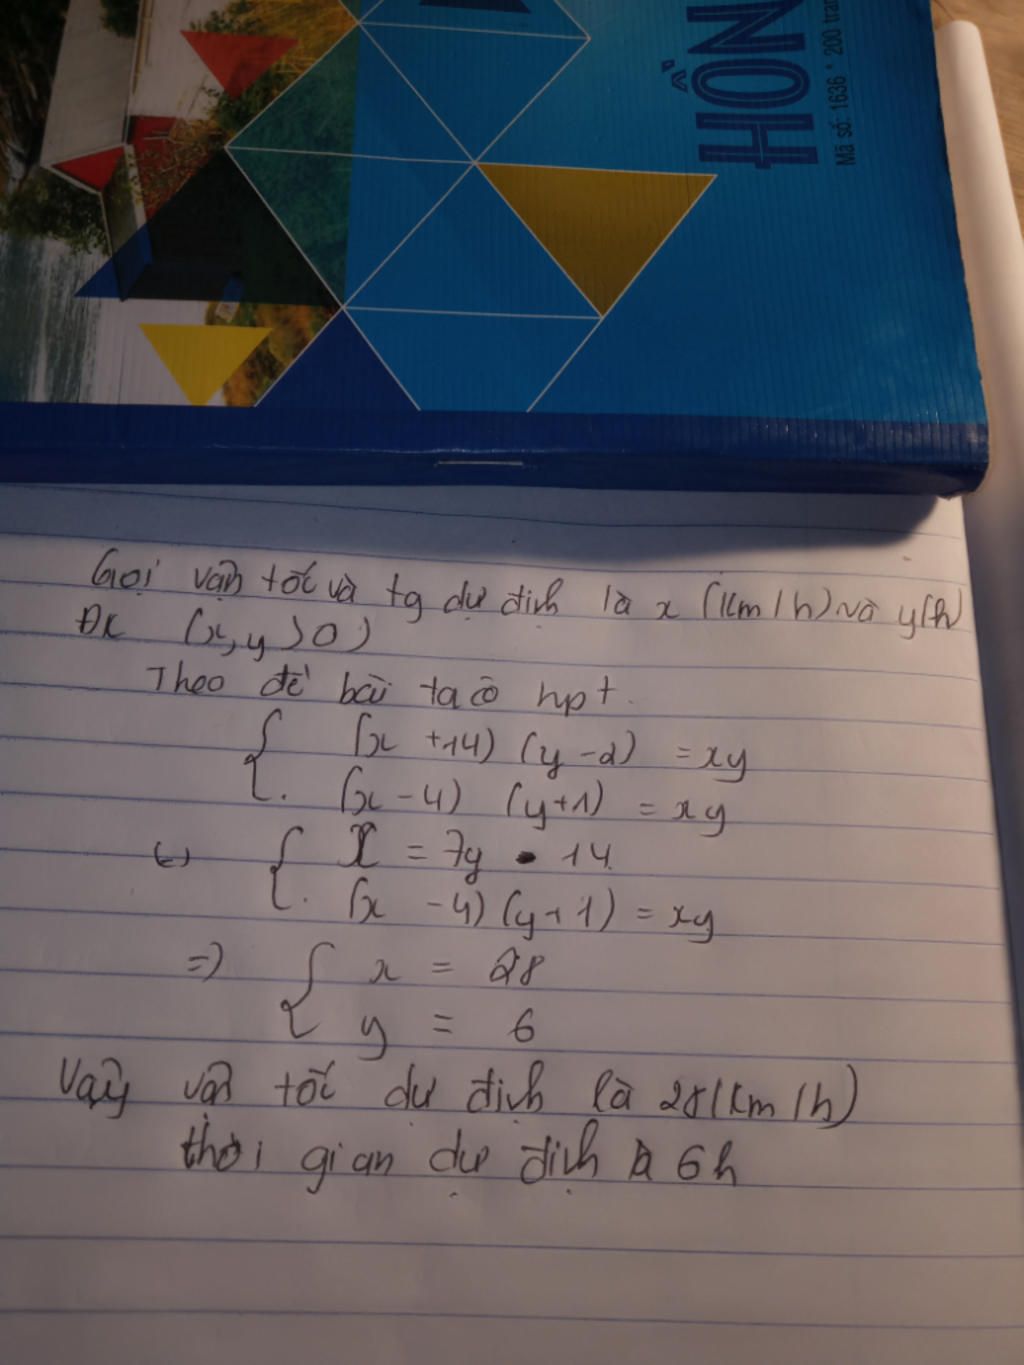 HỒN
Mã số: 1636 * 200 tran
Gọi vận tốc và tg dự định là x (km/h) và y(h)
ĐK (x,y > 0)
Theo đề bài ta có hpt.
{ (x + 14) (y - 2) = xy
. (x - 4) (y + 1) = xy
(=) { x = 7y - 14
. (x - 4) (y + 1) = xy
=) { x = 28
y = 6
Vậy vận tốc dự định là 28(km/h)
thời gian dự định là 6h